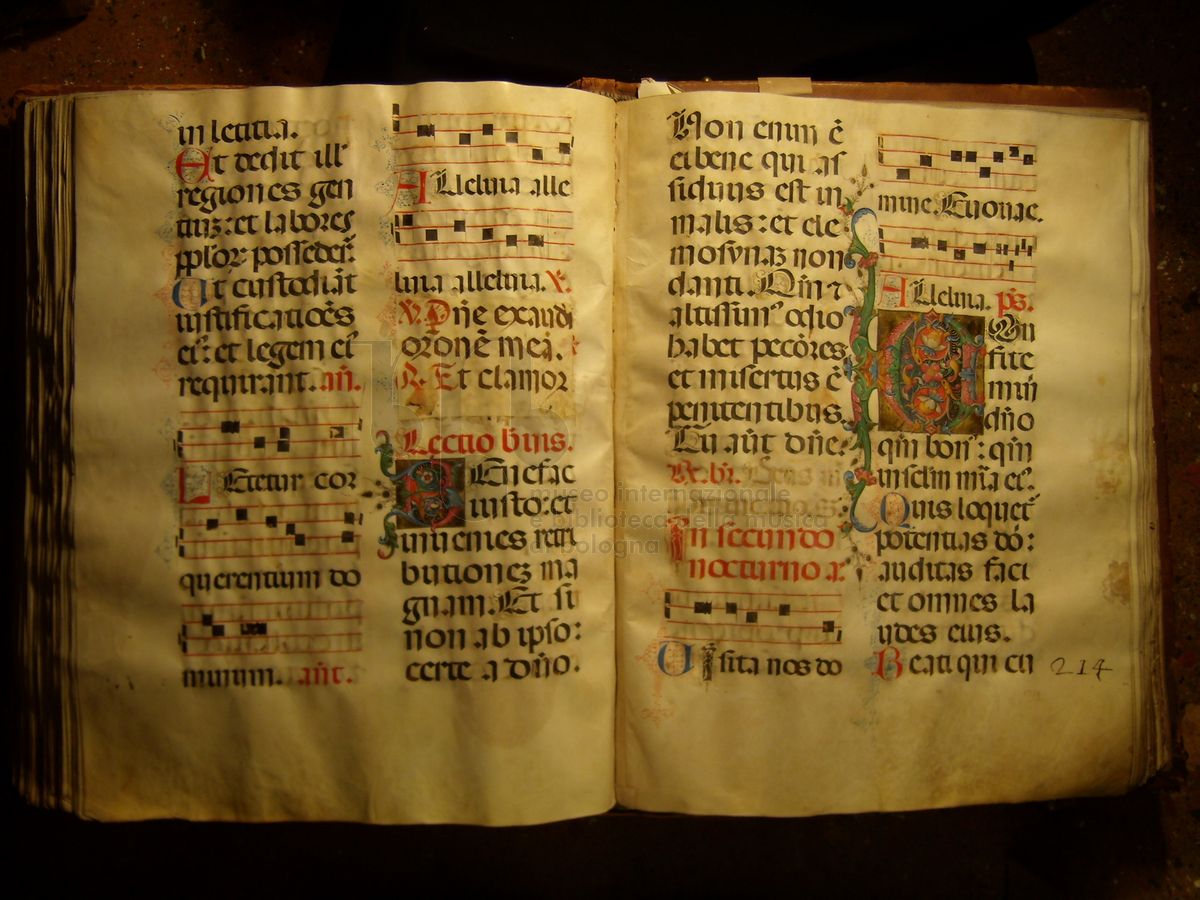 in letitia.
Et dedit ill'
regiones gen
tiuz: et labores
pplor possederṫ
Ut custodiāt
iustificatiões
ei': et legem ei'
requirant. añ.
Letetur cor
querentium do
minum. añt.
Alleluia alle
luia alleluia. V.
V. Dñe exaudi
orõnē meā.
R. Et clamor
Lectio bīus.
Benefac
iusto: et
inuenies retri
butionez ma
gnam. Et si
non ab ipso:
certe a dño.
Non enim ē
ei bene qui as
siduus est in
malis: et ele
mosynaz non
danti. Qm̄ ⁊
altissim' odio
habet peccõres
et misertus ē
penitentibus.
Tu aūt dñe.
R. br.
In secundo
nocturno a.
Uisita nos do
mine. Euouae.
Alleluia. ps.
Con
fite
mini
dño
qm̄ bon': qm̄
in sclm mīa ei'.
Quis loquet
potentias dõ:
auditas faci
et omnes la
udes eius.
Beati qui cu
214
museo internazionale
e biblioteca della musica
di bologna